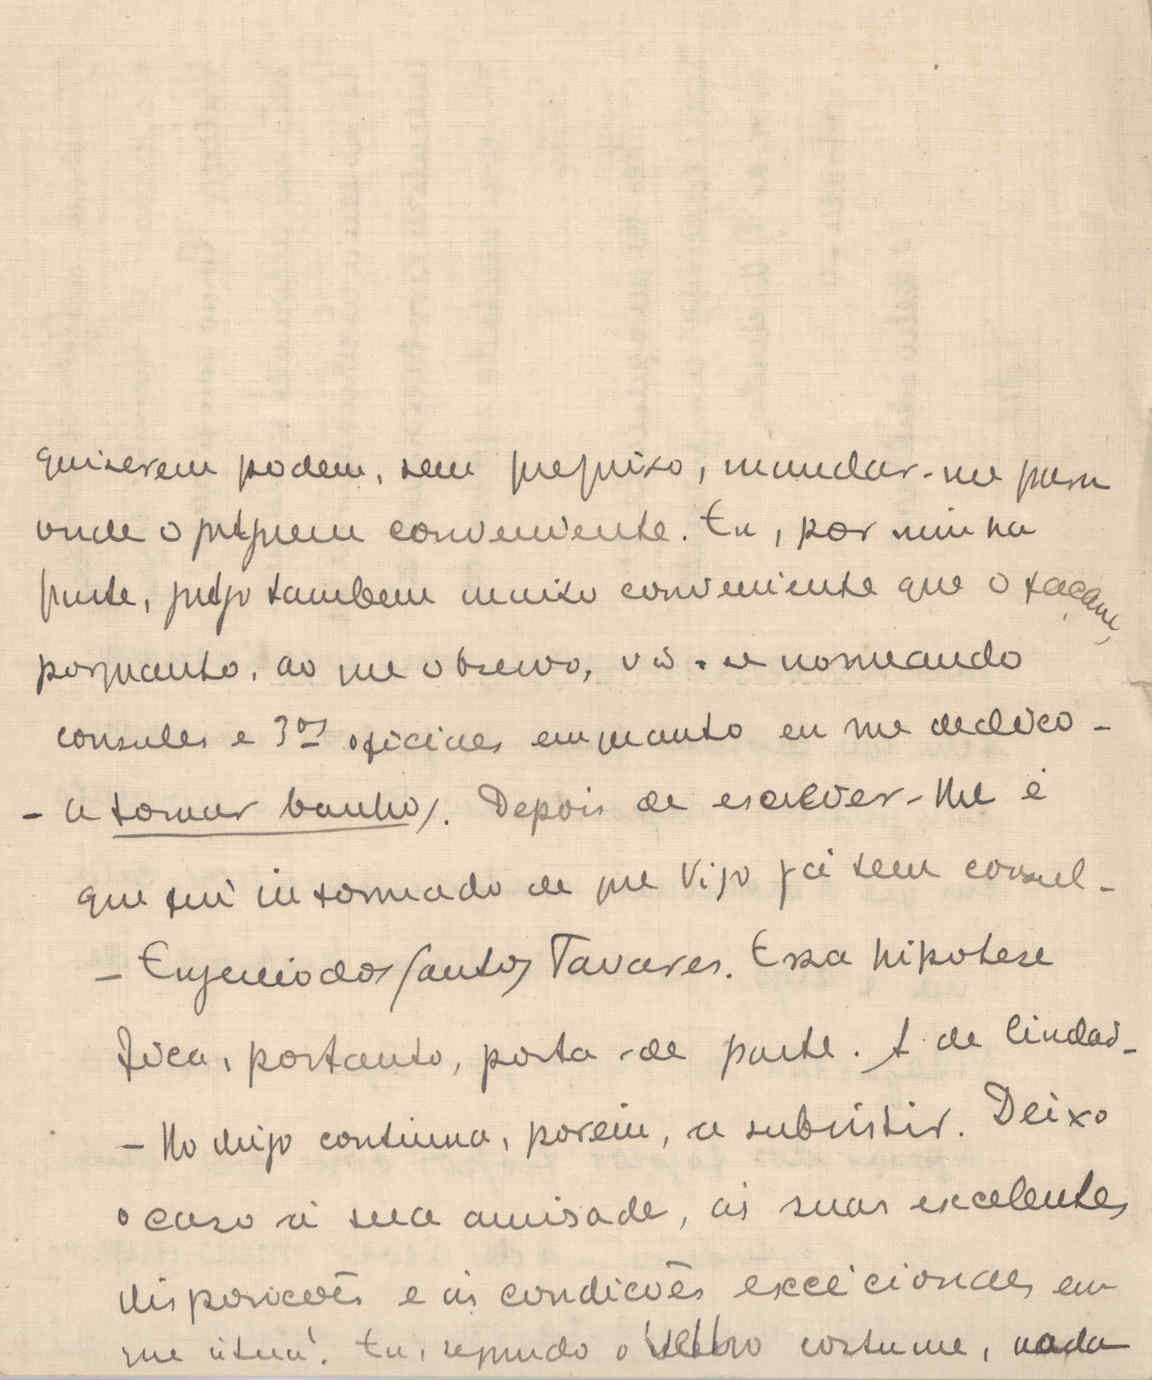 quiserem podem, sem prejuiso, mandar-me para
onde o julguem conveniente. Eu, por minha
parte, julgo tambem muito conveniente que o façam,
porquanto, ao que observo, vão-se nomeando
consules e 3os oficiaes emquanto eu me dedico-
- a tomar banhos. Depois de escrever-lhe é
que fui informado de que Vigo já tem consul-
- Eugenio dos Santos Tavares. Essa hipotese
fica, portanto, posta-de parte. A de Ciudad-
- Rodrigo continua, porém, a subsistir. Deixo
o caso á sua amisade, ás suas excelentes
disposicoēs e ás condicoēs excécionaes em
que está. Eu, segundo o velho costume, nada